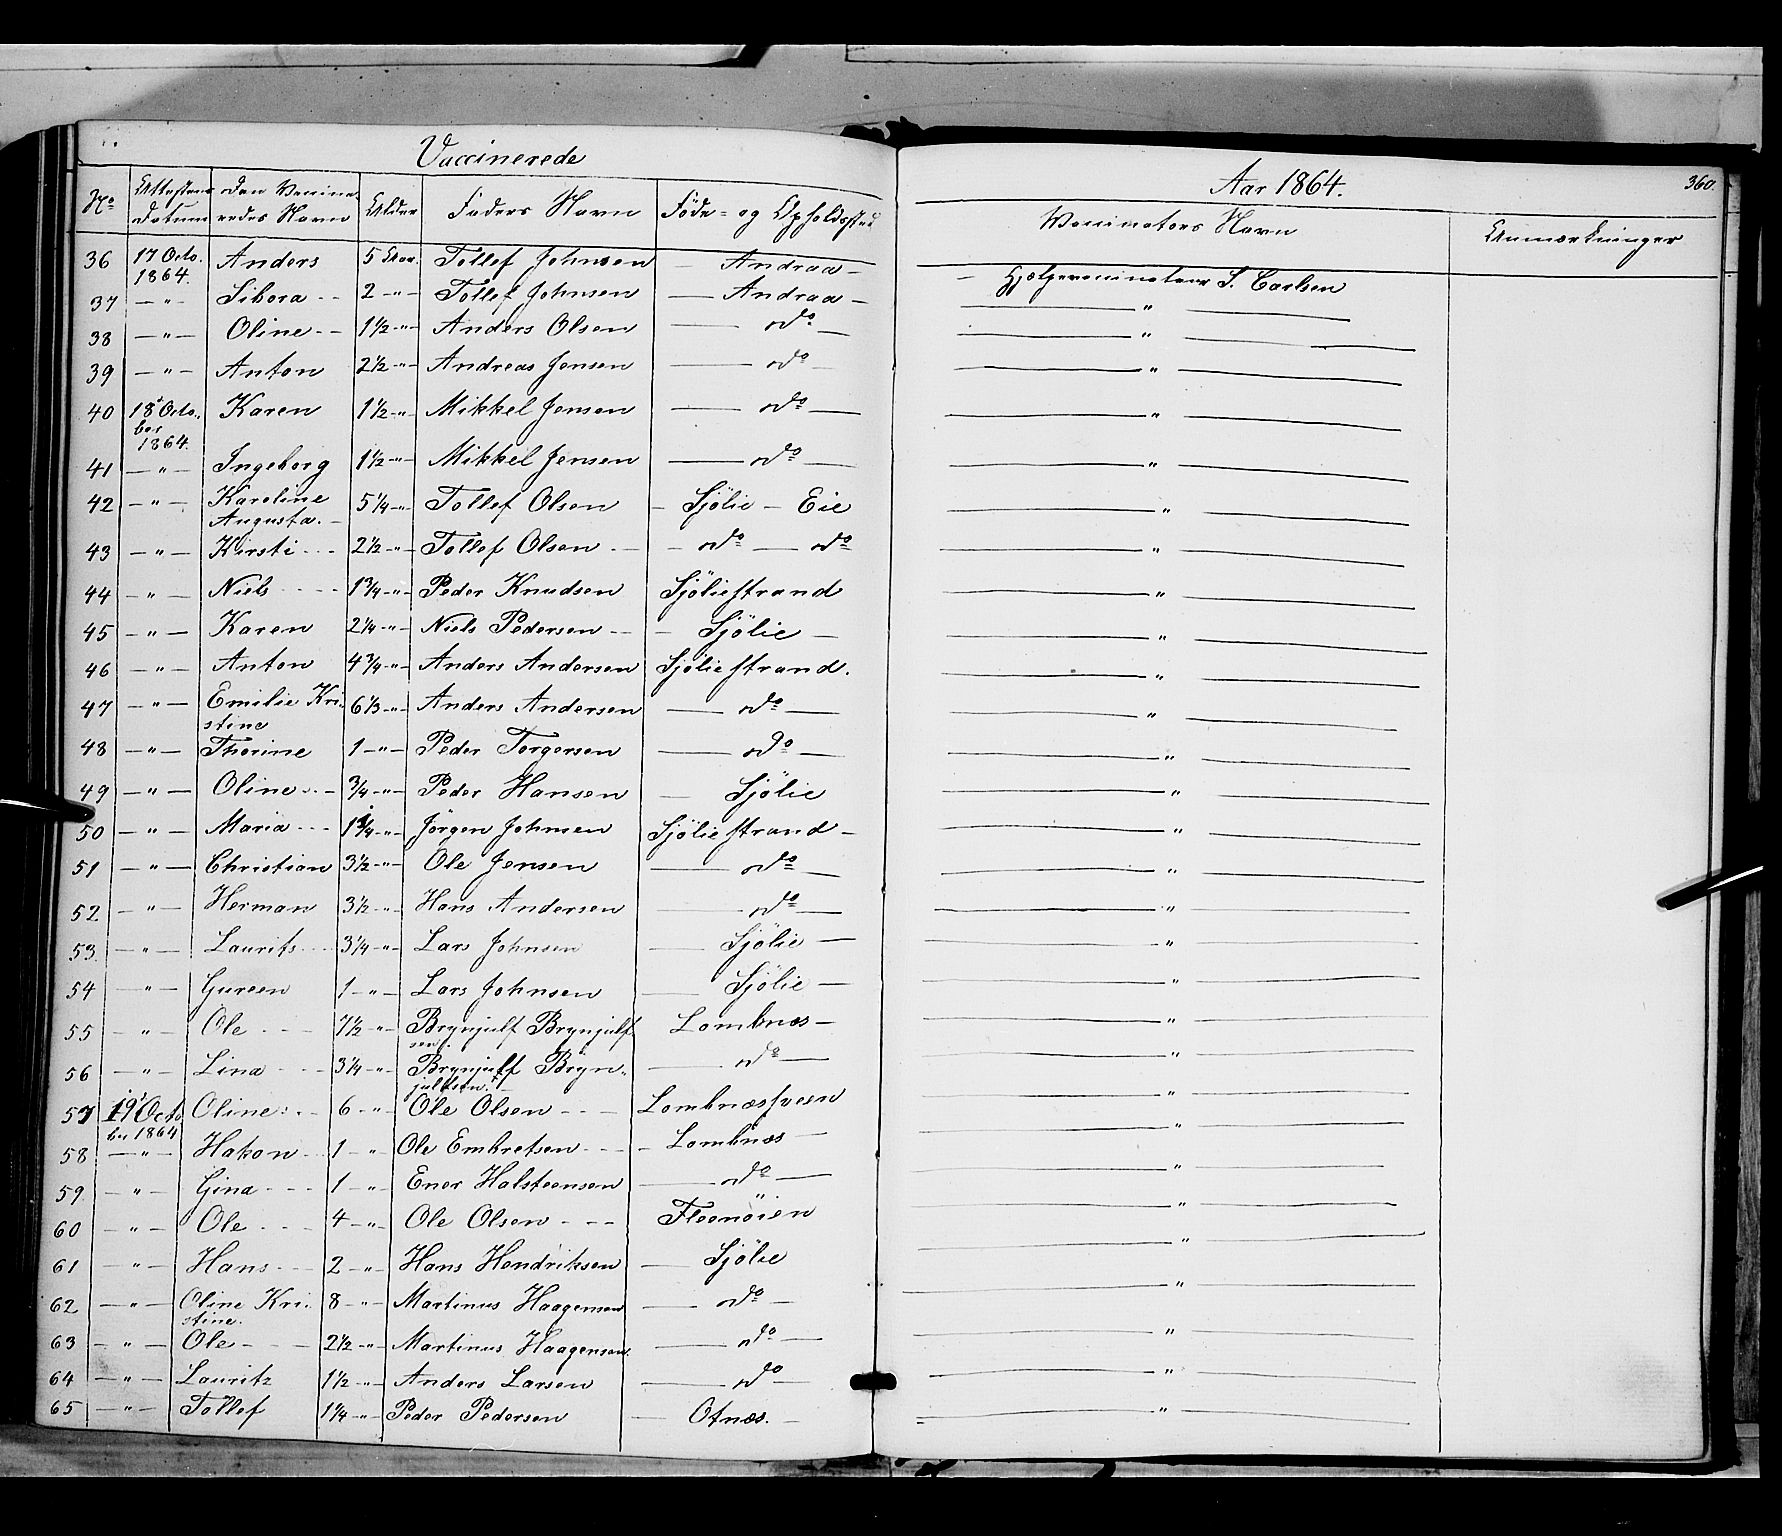 Vaccinerede
Aar 1864.
360.
No Attestens Datum Den Vaccineredes Navn Alder Faders Navn Føde- og Opholdssted Vaccinators Navn Anmærkninger
36 17 Octo. 1864. Anders 5 Aar. Tollef Johnsen — Andraa — — Hjelpevaccinateur S. Carlsen
37 — " — Sibora - - 2 - " - Tollef Johnsen — Andraa — — " —
38 — " — Oline - - 1½ - " - Anders Olsen — do — — " —
39 — " — Anton 2½ - " - Andreas Jensen — do — — " —
40 18 Octo- ber 1864. Karen 1½ - " - Mikkel Jensen — do — — " —
41 — " — Ingeborg 1½ - " - Mikkel Jensen — do — — " —
42 — " — Karoline Augusta. - 5¼ - " - Tollef Olsen — Sjölie — Eie — " —
43 — " — Kirsti - - - 2½ - " - Tollef Olsen - — — do — do — " —
44 — " — Niels - - - - 1¾ - " - Peder Knudsen Sjöliestrand — " —
45 — " — Karen 2¼ - " - Niels Pedersen - - — Sjölie — — " —
46 — " — Anton 4¾ - " - Anders Andersen Sjöliestrand. — " —
47 — " — Emilie Kri- stine 6⅓ - " - Anders Andersen — do — — " —
48 — " — Thorine 1 - " - Peder Torgersen — do — — " —
49 — " — Oline - - - ¾ - " - Peder Hansen — Sjölie — " —
50 — " — Maria - - - 1¼ - " - Jörgen Johnsen Sjöliestrand — — " —
51 — " — Christian 3½ - " - Ole Jensen — do — — " —
52 — " — Herman 3½ - " - Hans Andersen — do — — " —
53. — " — Laurits - - - 3¼ - " - Lars Johnsen — Sjölie — — " —
54 — " — Gureen 1 - " - Lars Johnsen — Sjölie — — " —
55 — " — Ole - - - - 7½ - " - Brynjulf Brynjulf- sen. Lombnæs — — " —
56 — " — Lina - - - 3¼ - " - Brynjulf Bryn- julfsen. — — do — — " —
57 19 Octo- ber 1864 Oline - - - 6 - " - Ole Olsen - - - Lombnæsveen — " —
58 — " — Hakon - - 1 - " - Ole Embretsen - - - — Lombnæs — — " —
59. — " — Gina - - - 1 - " - Ener Halsteensen — do — — " —
60 — " — Ole - - - - 4 - " - Ole Olsen - - - Fleenöien — " —
61 — " — Hans - - - 2 - " - Hans Hendriksen — Sjölie — " —
62 — " — Oline Kri- stine. 8 - " - Martinus Haagensen — do — — " —
63 — " — Ole - - - - 2½ - " - Martinus Haagensen. — do — — " —
64 — " — Lauritz 1½ - " - Anders Larsen — do — — " —
65 — " — Tollef 1¼ - " - Peder Pedersen — Otnæs. — — " —